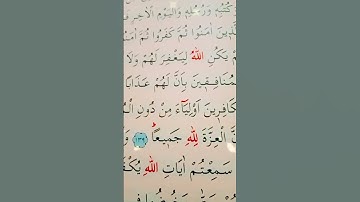 كُتُبِهِ وَرُسُلِهِ وَالْيَوْمِ الْاٰخِرِ
الَّذِينَ اٰمَنُوا ثُمَّ كَفَرُوا ثُمَّ اٰمَنُوا
يَكُنِ اللّٰهُ لِيَغْفِرَ لَهُمْ وَلَا
الْمُنَافِقِينَ بِاَنَّ لَهُمْ عَذَابًا
الْكَافِرِينَ اَوْلِيَٓاءَ مِنْ دُونِ
الْعِزَّةَ لِلّٰهِ جَمِيعًا ﴿١٣٩﴾
سَمِعْتُمْ اٰيَاتِ اللّٰهِ